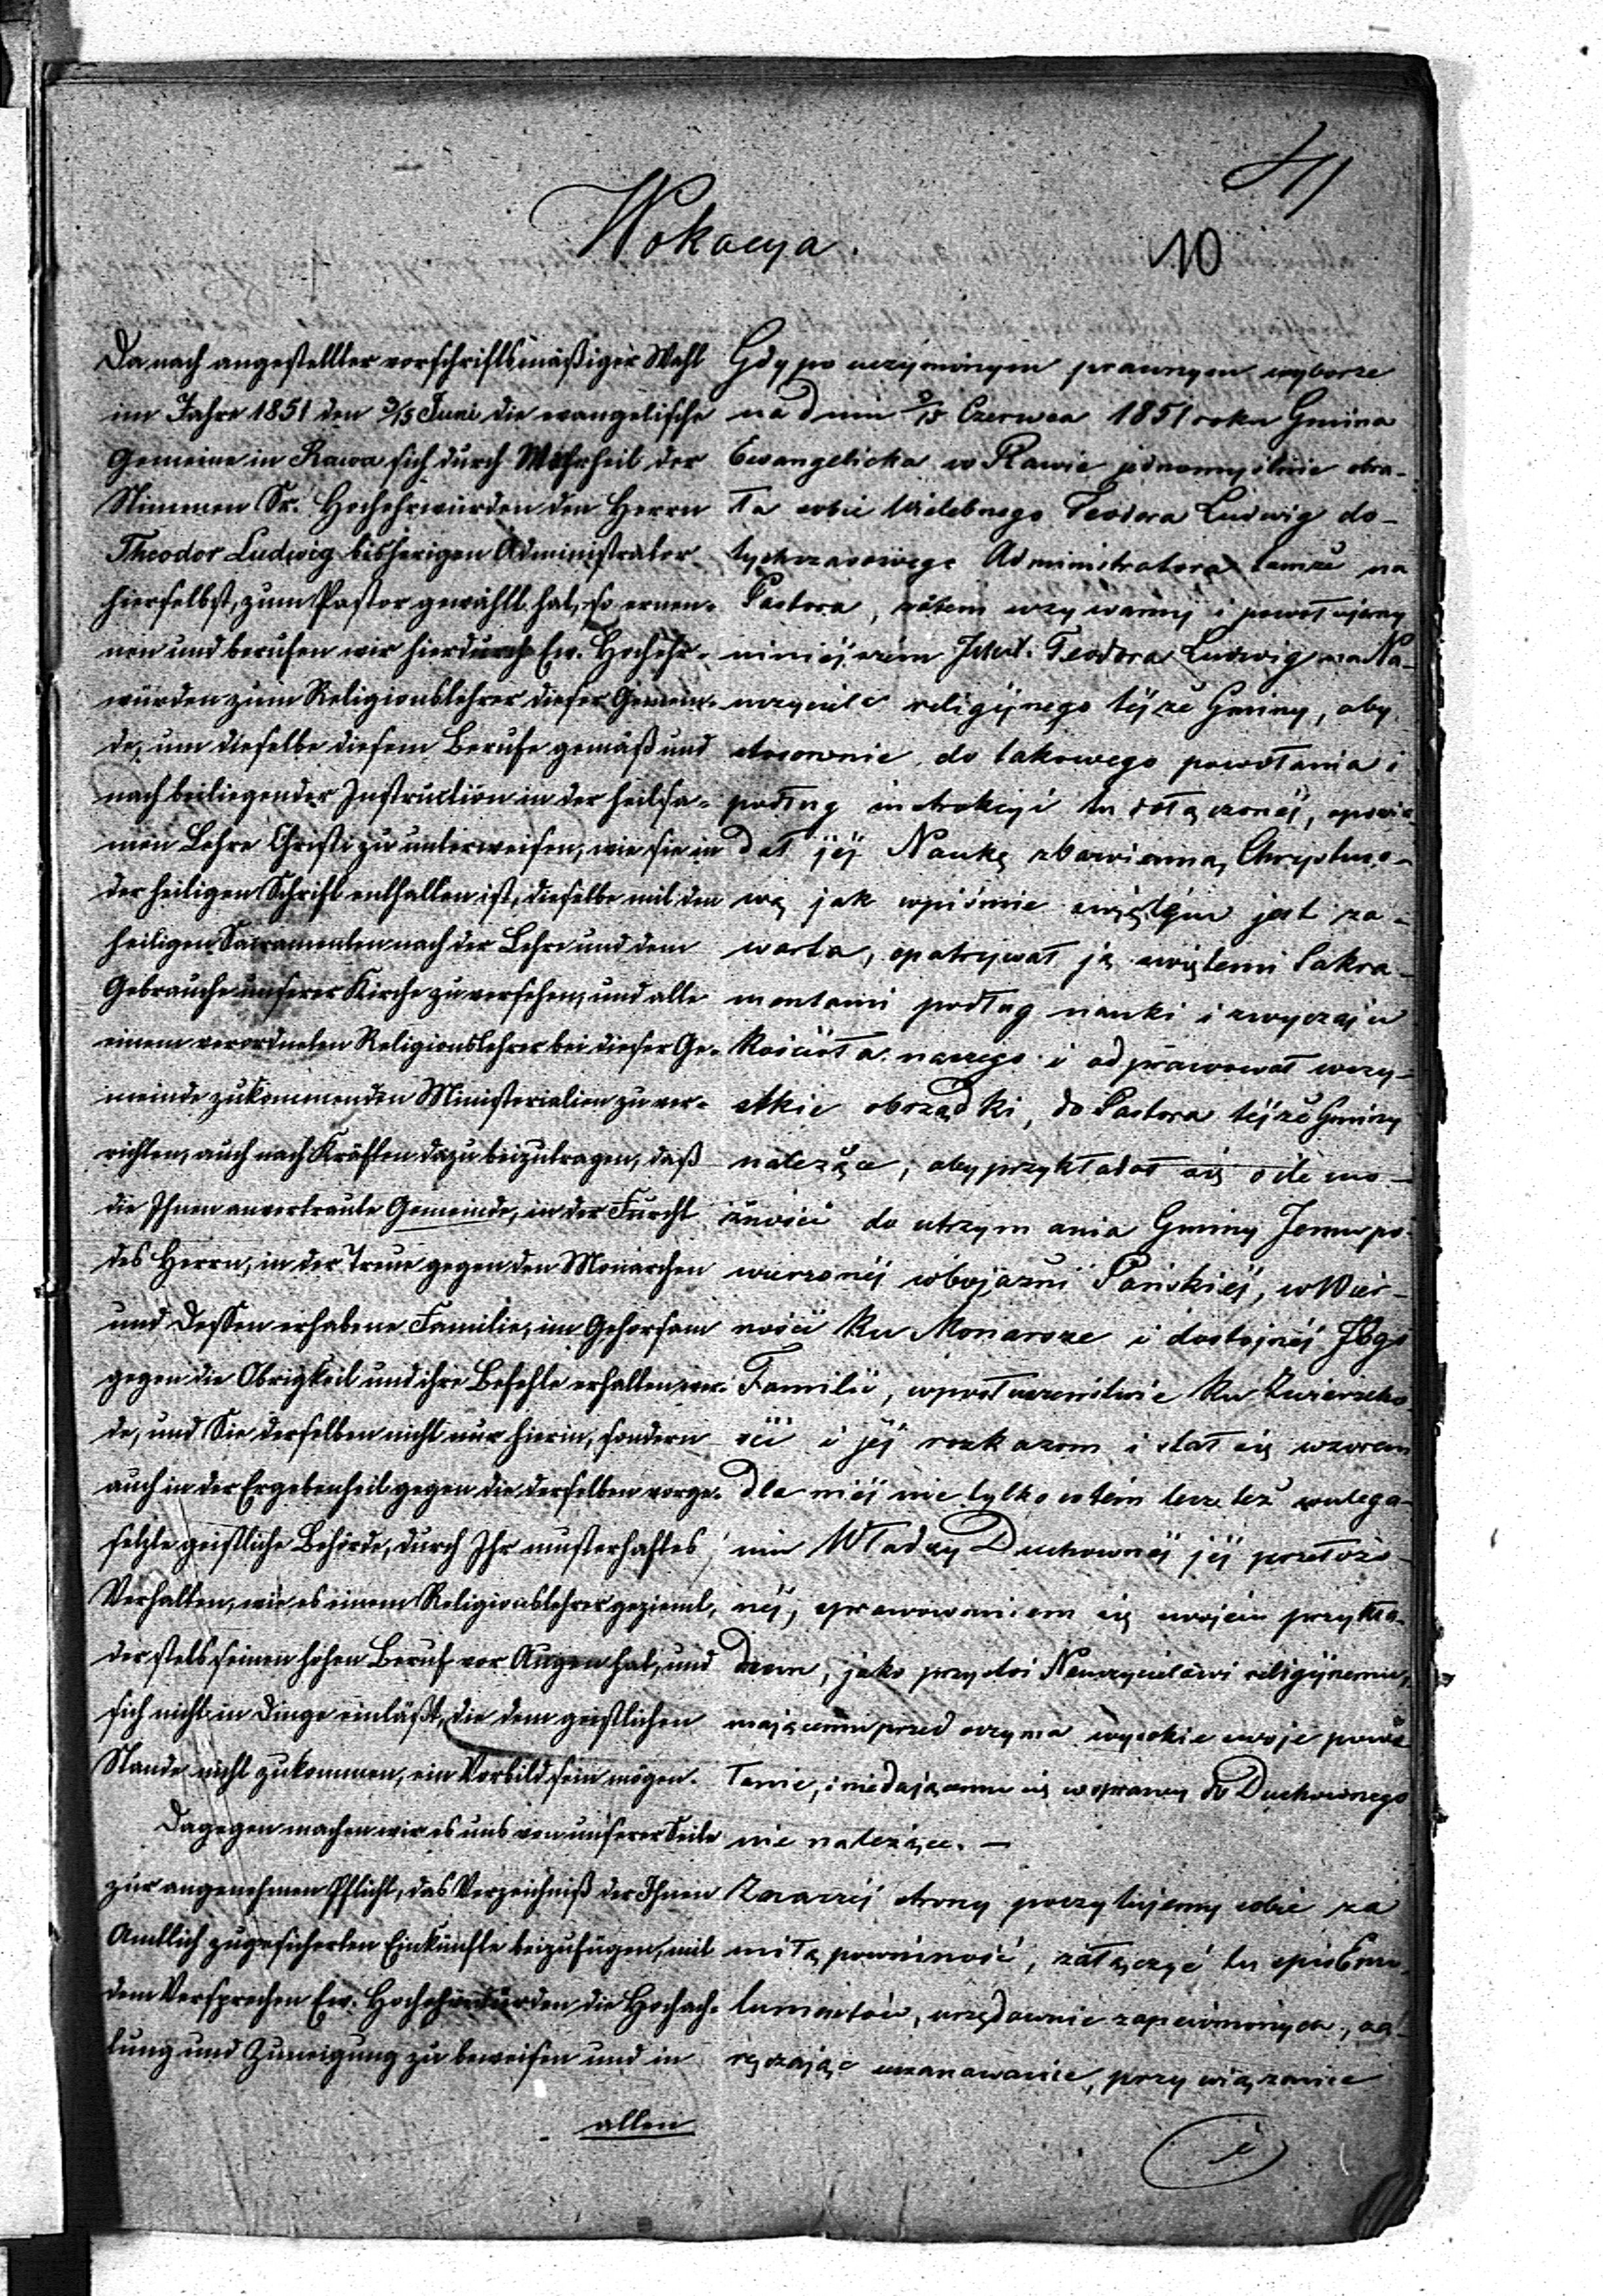 41
Wokacya.
10
Da nach angestellter vorschriftsmäßiger Wahl
im Jahre 1851 den 3/15 Juni die evangelische
Gemeine in Rawa sich durch Mehrheit der
Stimmen Sr. Hochehrwürden den Herrn
Theodor Ludwig bisherigen Administrator
hierselbst, zum Pastor gewählt hat, so ernen-
nen und berufen wir hierdurch Ew. Hochehr-
würden zum Religionslehrer dieser Gemein-
de, um dieselbe diesem Berufe gemäß und
nach beiliegender Instruction in der heilsa-
men Lehre Christi zu unterweisen, wie sie in
der heiligen Schrift enthalten ist, dieselbe mit den
heiligen Sacramenten nach der Lehre und dem
Gebrauche unserer Kirche zu versehen, und alle
einem verordneten Religionslehrer bei dieser Ge-
meinde zukommenden Ministerialien zu ver-
richten, auch nach Kräften dazu beizutragen, daß
die Ihnen anvertraute Gemeinde, in der Furcht
des Herrn, in der Treue gegen den Monarchen
und Dessen erhabene Familie, im Gehorsam
gegen die Obrigkeit und ihre Befehle erhalten wer-
de, und Sie derselben nicht nur hierin, sondern
auch in der Ergebenheit gegen die derselben vorge-
setzte geistliche Behörde, durch Ihr musterhaftes
Verhalten, wie es einem Religionslehrer geziemt,
der stets seinen hohen Beruf vor Augen hat, und
sich nicht in Dinge einläßt, die dem geistlichen
Stande nicht zukommen, ein Vorbild sein mögen.
Dagegen machen wir es uns von unserer Seite
zur angenehmen Pflicht, das Verzeichniß der Ihnen
Amtlich zugesicherten Einkünfte beizufügen, mit
dem Versprechen Ew. Hochehrwürden die Hochach-
tung und Zuneigung zu beweisen und in
allen
Gdy po uczynionym prawnym wyborze
na dniu 3/15 Czerwca 1851 roku Gmina
Ewangelicka w Rawie jednomyślnie obra-
ła sobie Wielebnego Teodora Ludwig do-
tychczasowego Administratora tamże na
Pastora, zatem wzywamy i powołujemy
niniejszém Teodora Ludwig na Na-
uczyciela religijnego téjże Gminy, aby
stosownie do takowego powołania i
podług instrukcyi tu dołączonéj, opowia-
dał jéj Naukę zbawienną Chrystuso-
wą jak w piśmie świętém jest za-
warta, opatrywał ją świętemi Sakra-
mentami podług nauki i zwyczaju
Kościoła naszego i odprawował wszy-
stkie obrządki, do Pastora téjże Gminy
należące, aby przykładał się o ile mo-
żności do utrzymania Gminy Jemu po-
wierzonéj w bojaźni Pańskiéj, w Wier-
ności ku Monarsze i dostojnéj Jego
Familii, w posłuszeństwie ku Zwierzchno
ści i jéj rozkazom i stał się wzorem
dla niéj nie tylko w tém lecz też w ulega-
niu Władzy Duchownéj jéj przełożo-
néj, sprawowaniem się swojém przykła-
dnem, jako przystoi Nauczycielowi religijnemu,
mającemu przed oczyma wysokie swoje powo
łanie, i niedającemu się w sprawy do Duchownego
nie należące. —
Z naszéj strony poczytujemy sobie za
miłą powinność, załączyć tu spis Emo-
lumentów, urzędownie zapewnionych, za-
ręczając uszanowanie, przywiązanie
i